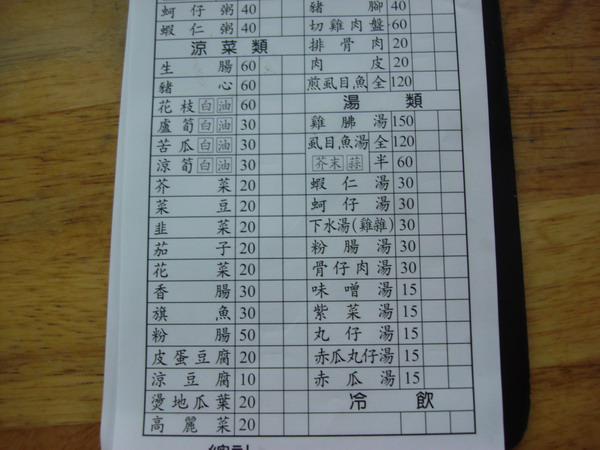 蚵仔粥 40
蝦仁粥 40
涼菜類
生腸 60
豬心 60
花枝 白 油 60
盧筍 白 油 30
苦瓜 白 油 30
涼筍 白 油 30
芥菜 20
菜豆 20
韭菜 20
茄子 20
花菜 20
香腸 30
旗魚 30
粉腸 50
皮蛋豆腐 20
涼豆腐 10
燙地瓜葉 20
高麗菜 20
豬腳 40
切雞肉盤 60
排骨肉 20
肉皮 20
煎虱目魚 全 120
湯類
雞胇湯 150
虱目魚湯 全 120
芥末 蒜 半 60
蝦仁湯 30
蚵仔湯 30
下水湯(雞雜) 30
粉腸湯 30
骨仔肉湯 30
味噌湯 15
紫菜湯 15
丸仔湯 15
赤瓜丸仔湯 15
赤瓜湯 15
冷飲